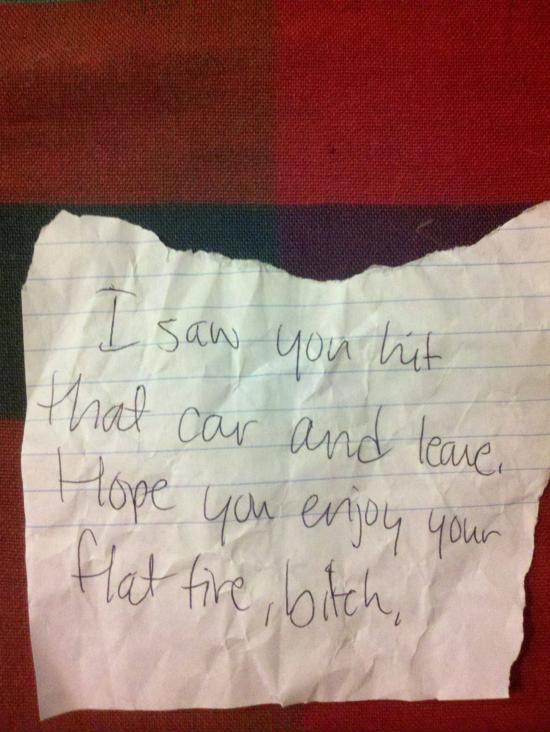 I saw you hit
that car and leave.
Hope you enjoy your
flat tire, bitch.